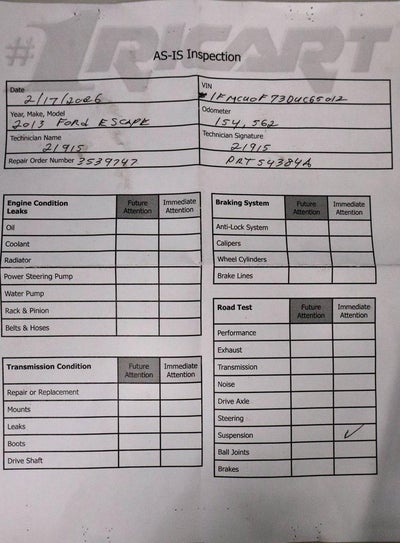 #1 RICART
AS-IS Inspection
Date 2/17/2026
VIN 1FMCU0F73DUC65012
Year, Make, Model 2013 FORD ESCAPE
Odometer 154,562
Technician Name 21915
Technician Signature 21915
Repair Order Number 3539747
PRT54384A
Engine Condition Future Attention Immediate Attention
Leaks
Oil
Coolant
Radiator
Power Steering Pump
Water Pump
Rack & Pinion
Belts & Hoses
Transmission Condition Future Attention Immediate Attention
Repair or Replacement
Mounts
Leaks
Boots
Drive Shaft
Braking System Future Attention Immediate Attention
Anti-Lock System
Calipers
Wheel Cylinders
Brake Lines
Road Test Future Attention Immediate Attention
Performance
Exhaust
Transmission
Noise
Drive Axle
Steering
Suspension ✓
Ball Joints
Brakes